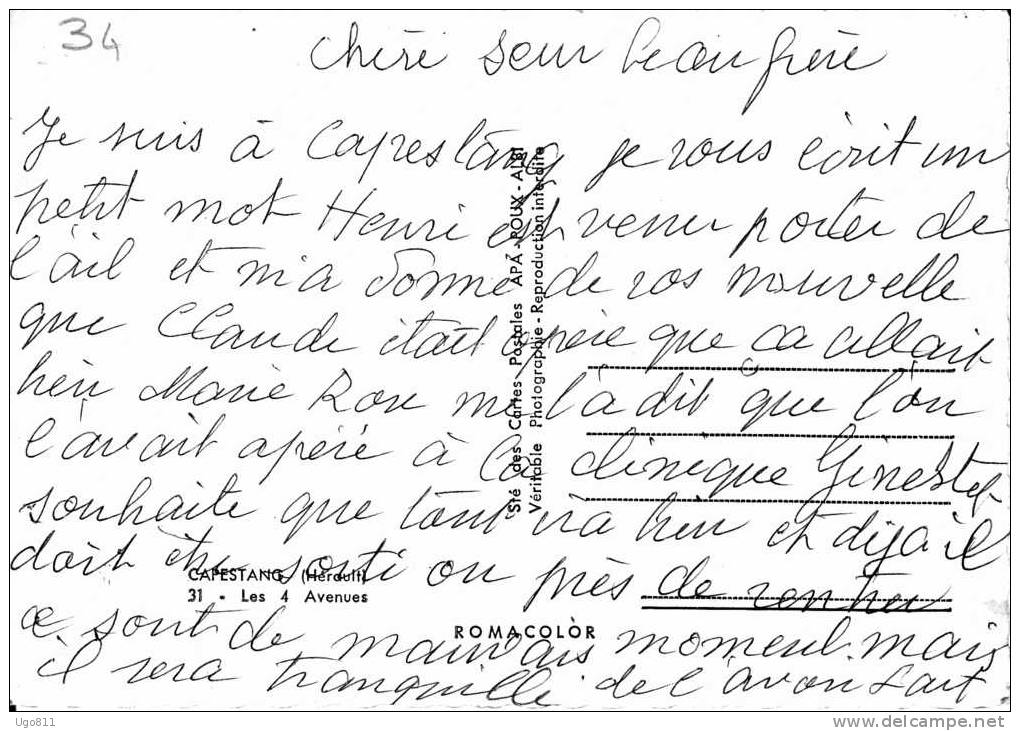 34
Chère seur beaufrère
Je suis à Capestang je vous écrit un
petit mot Henri est venu porter de
l'ail et m'a donné de vos nouvelle
que Claude était opéré que ca allait
bien Marie Rose me l'a dit que l'on
l'avait opéré à la clinique Ginestet
souhaite que tout va bien et dija il
doit être sorti ou près de rentrer
ce sont de mauvais moment mais
il sera tranquille de l'avoir fait
Sté des Cartes - Postales APA - POUX - ALBI
Véritable Photographie - Reproduction interdite
CAPESTANG (Hérault)
31 - Les 4 Avenues
ROMACOLOR
Ugo811
www.delcampe.net